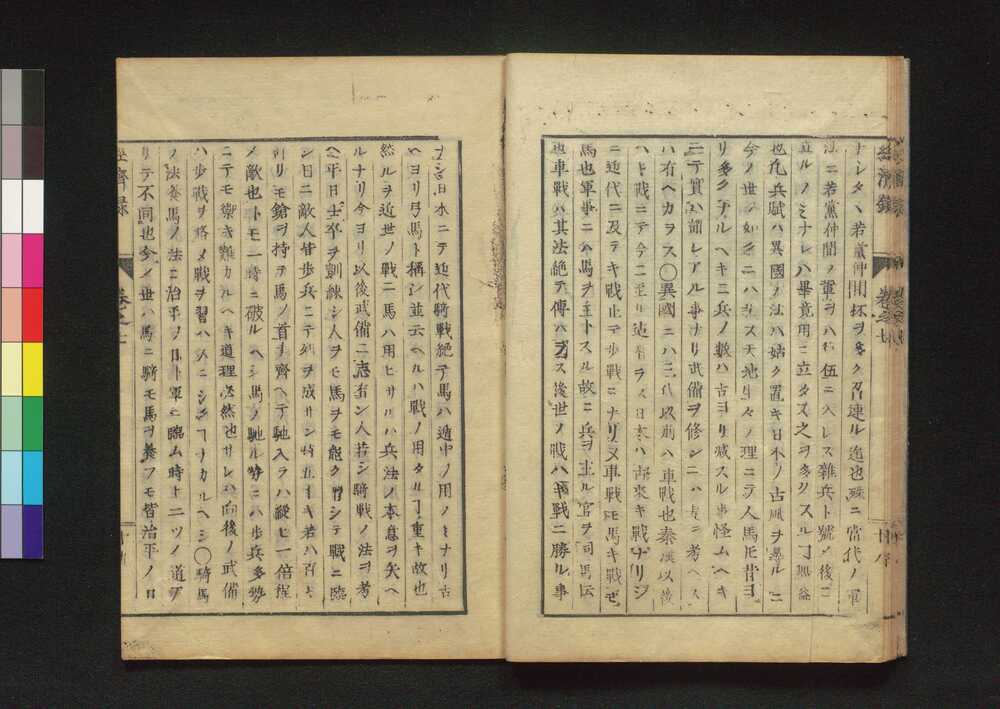 ナシタヽ若黨仲間抔ヲ多ク召連ル迄也殊ニ當代ノ軍
法ニ若黨仲間ノ輩ヲハ行伍ニ入レス雜兵ト號メ後ニ
立ルノミナレハ畢竟用ニ立タス之ヲ多クスル丁無益
也凡兵賦ハ異國ノ法ハ姑ク置キ日本ノ古風ヲ尋ルニ
今ノ世ノ如クニハ非ス天地生々ノ理ニテ人馬ヒ昔ヨ
リ多クナルヘキニ兵ノ數ハ古ヨリ減スル事怪ムヘキ
ニテ實ハ謂レアル事ナリ武備ヲ修シニハ是ニ考ヘス
ハ有ヘカラス〇異國ニハ三代以前ハ車戰也秦漢以後
ハ騎戰ニテ今ニ至リ 日本ハ古來騎戰ナリシ
ニ近代ニ及テ騎戰止テ歩戰ニナリヌ車戰モ馬騎戰モ
馬也軍事ニハ馬ヲ主トスル故ニ兵ヲ主ル官ヲ司馬云
也車戰ハ其法絶テ傳ハラス後世ノ戰ハ騎戰ニ勝ル事
經濟錄 卷之七
ナシ日本ニテ近代騎戰絶テ馬ハ道中ノ用ノミナリ古
ヘヨリ弓馬ト稱シ並云ヘルハ戰ノ用タル丁重キ故也
然ルヲ近世ノ戰ニ馬ハ用ヒサルハ兵法ノ本意ヲ失ヘ
ルナリ今ヨリ以後武備ニ志有ン人若シ騎戰ノ法ヲ考
ヘ平日士卒ヲ訓練シ人ヲモ馬ヲモ能ク習シテ戰ニ臨
シ日ニ敵人皆歩兵ニテ列ヲ成サン時五十騎若ハ百騎
計リモ鎗ヲ持テ馬ノ首ヲ齊ヘテ馳入ラハ縱ヒ一倍程
ノ敵也トモ一時ニ破ルヘシ馬ノ馳ル勢ニハ歩兵多勢
ニテモ禦キ難カルヘキ道理必然也サレハ向後ノ武備
ハ歩戰ヲ略メ騎戰ヲ習ハスニシクハナカルヘシ〇騎馬
ノ法養馬ノ法ニ治平ノ日ト軍ニ臨ム時ト二ツノ道ア
リテ不同也今ノ世ハ馬ニ騎モ馬ヲ養フモ皆治平ノ日
經濟錄 卷之七